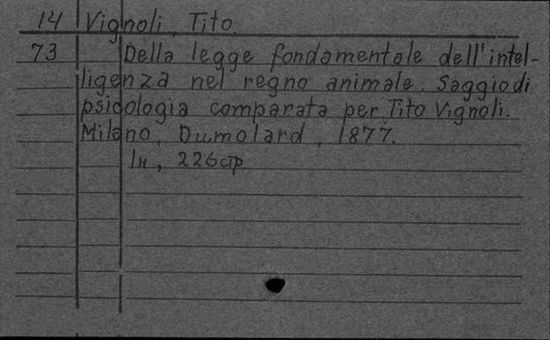 14 Vignoli, Tito.
73 Della legge fondamentale dell'intel-
ligenza nel regno animale. Saggio di
psicologia comparata per Tito Vignoli.
Milano, Dumolard, 1877.
1н, 226стр.